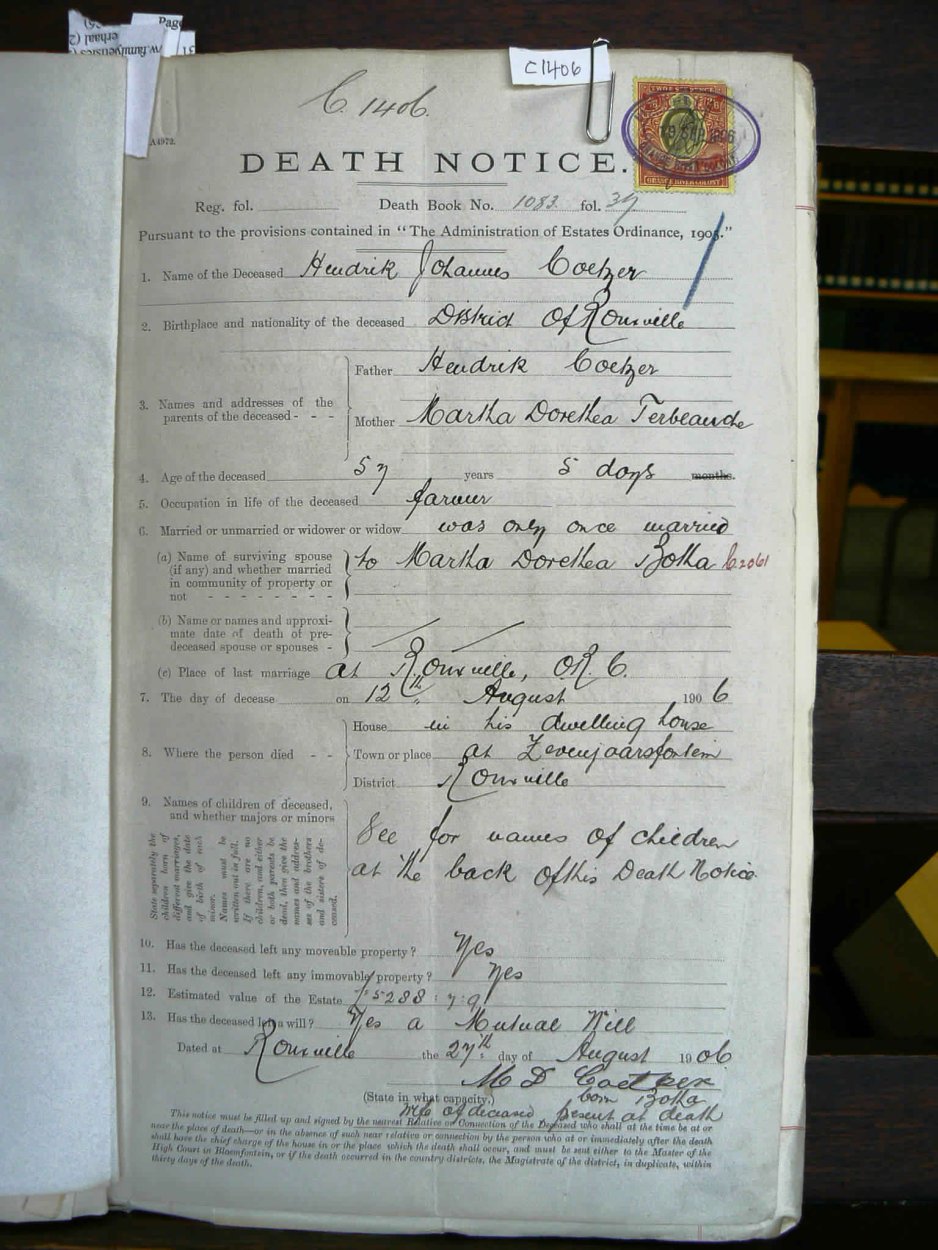 Page
C1406
C. 1406.
A4972.
ORANGE RIVER COLONY
DEATH NOTICE.
Reg. fol. Death Book No. 1083 fol. 37
Pursuant to the provisions contained in "The Administration of Estates Ordinance, 1905."
1. Name of the Deceased Hendrik Johannes Coetzer
2. Birthplace and nationality of the deceased District Of Rouxville
3. Names and addresses of the parents of the deceased - - -
Father Hendrik Coetzer
Mother Martha Dorethea Terbeanche
4. Age of the deceased 57 years 5 days months.
5. Occupation in life of the deceased farmer
6. Married or unmarried or widower or widow was only once married
(a) Name of surviving spouse
(if any) and whether married
in community of property or
not - - - - - - -
to Martha Dorethea Botha C2061
(b) Name or names and approxi-
mate date of death of pre-
deceased spouse or spouses -
(c) Place of last marriage at Rouxville, O.R.C.
7. The day of decease on 12th August 1906
8. Where the person died - -
House in his dwelling house
Town or place at Zevenjaarsfontein
District Rouxville
9. Names of children of deceased,
and whether majors or minors
State separately the
children born of
different marriages,
and give the date
of birth of each
minor.
Names must be
written out in full.
If there are no
children, and either
or both parents be
dead, then give the
names and address-
es of the brothers
and sisters of de-
ceased.
See for names of children
at the back of this Death Notice
10. Has the deceased left any moveable property? Yes
11. Has the deceased left any immovable property? Yes
12. Estimated value of the Estate £5288 : 7 : 9
13. Has the deceased left a will? Yes a Mutual Will
Dated at Rouxville the 27th day of August 1906
M D Coetzer
(State in what capacity.) born Botha
Wife of deceased present at death
This notice must be filled up and signed by the nearest Relative or Connection of the Deceased who shall at the time be at or
near the place of death—or in the absence of such near relative or connection by the person who at or immediately after the death
shall have the chief charge of the house in or the place which the death shall occur, and must be sent either to the Master of the
High Court in Bloemfontein, or if the death occurred in the country districts, the Magistrate of the district, in duplicate, within
thirty days of the death.